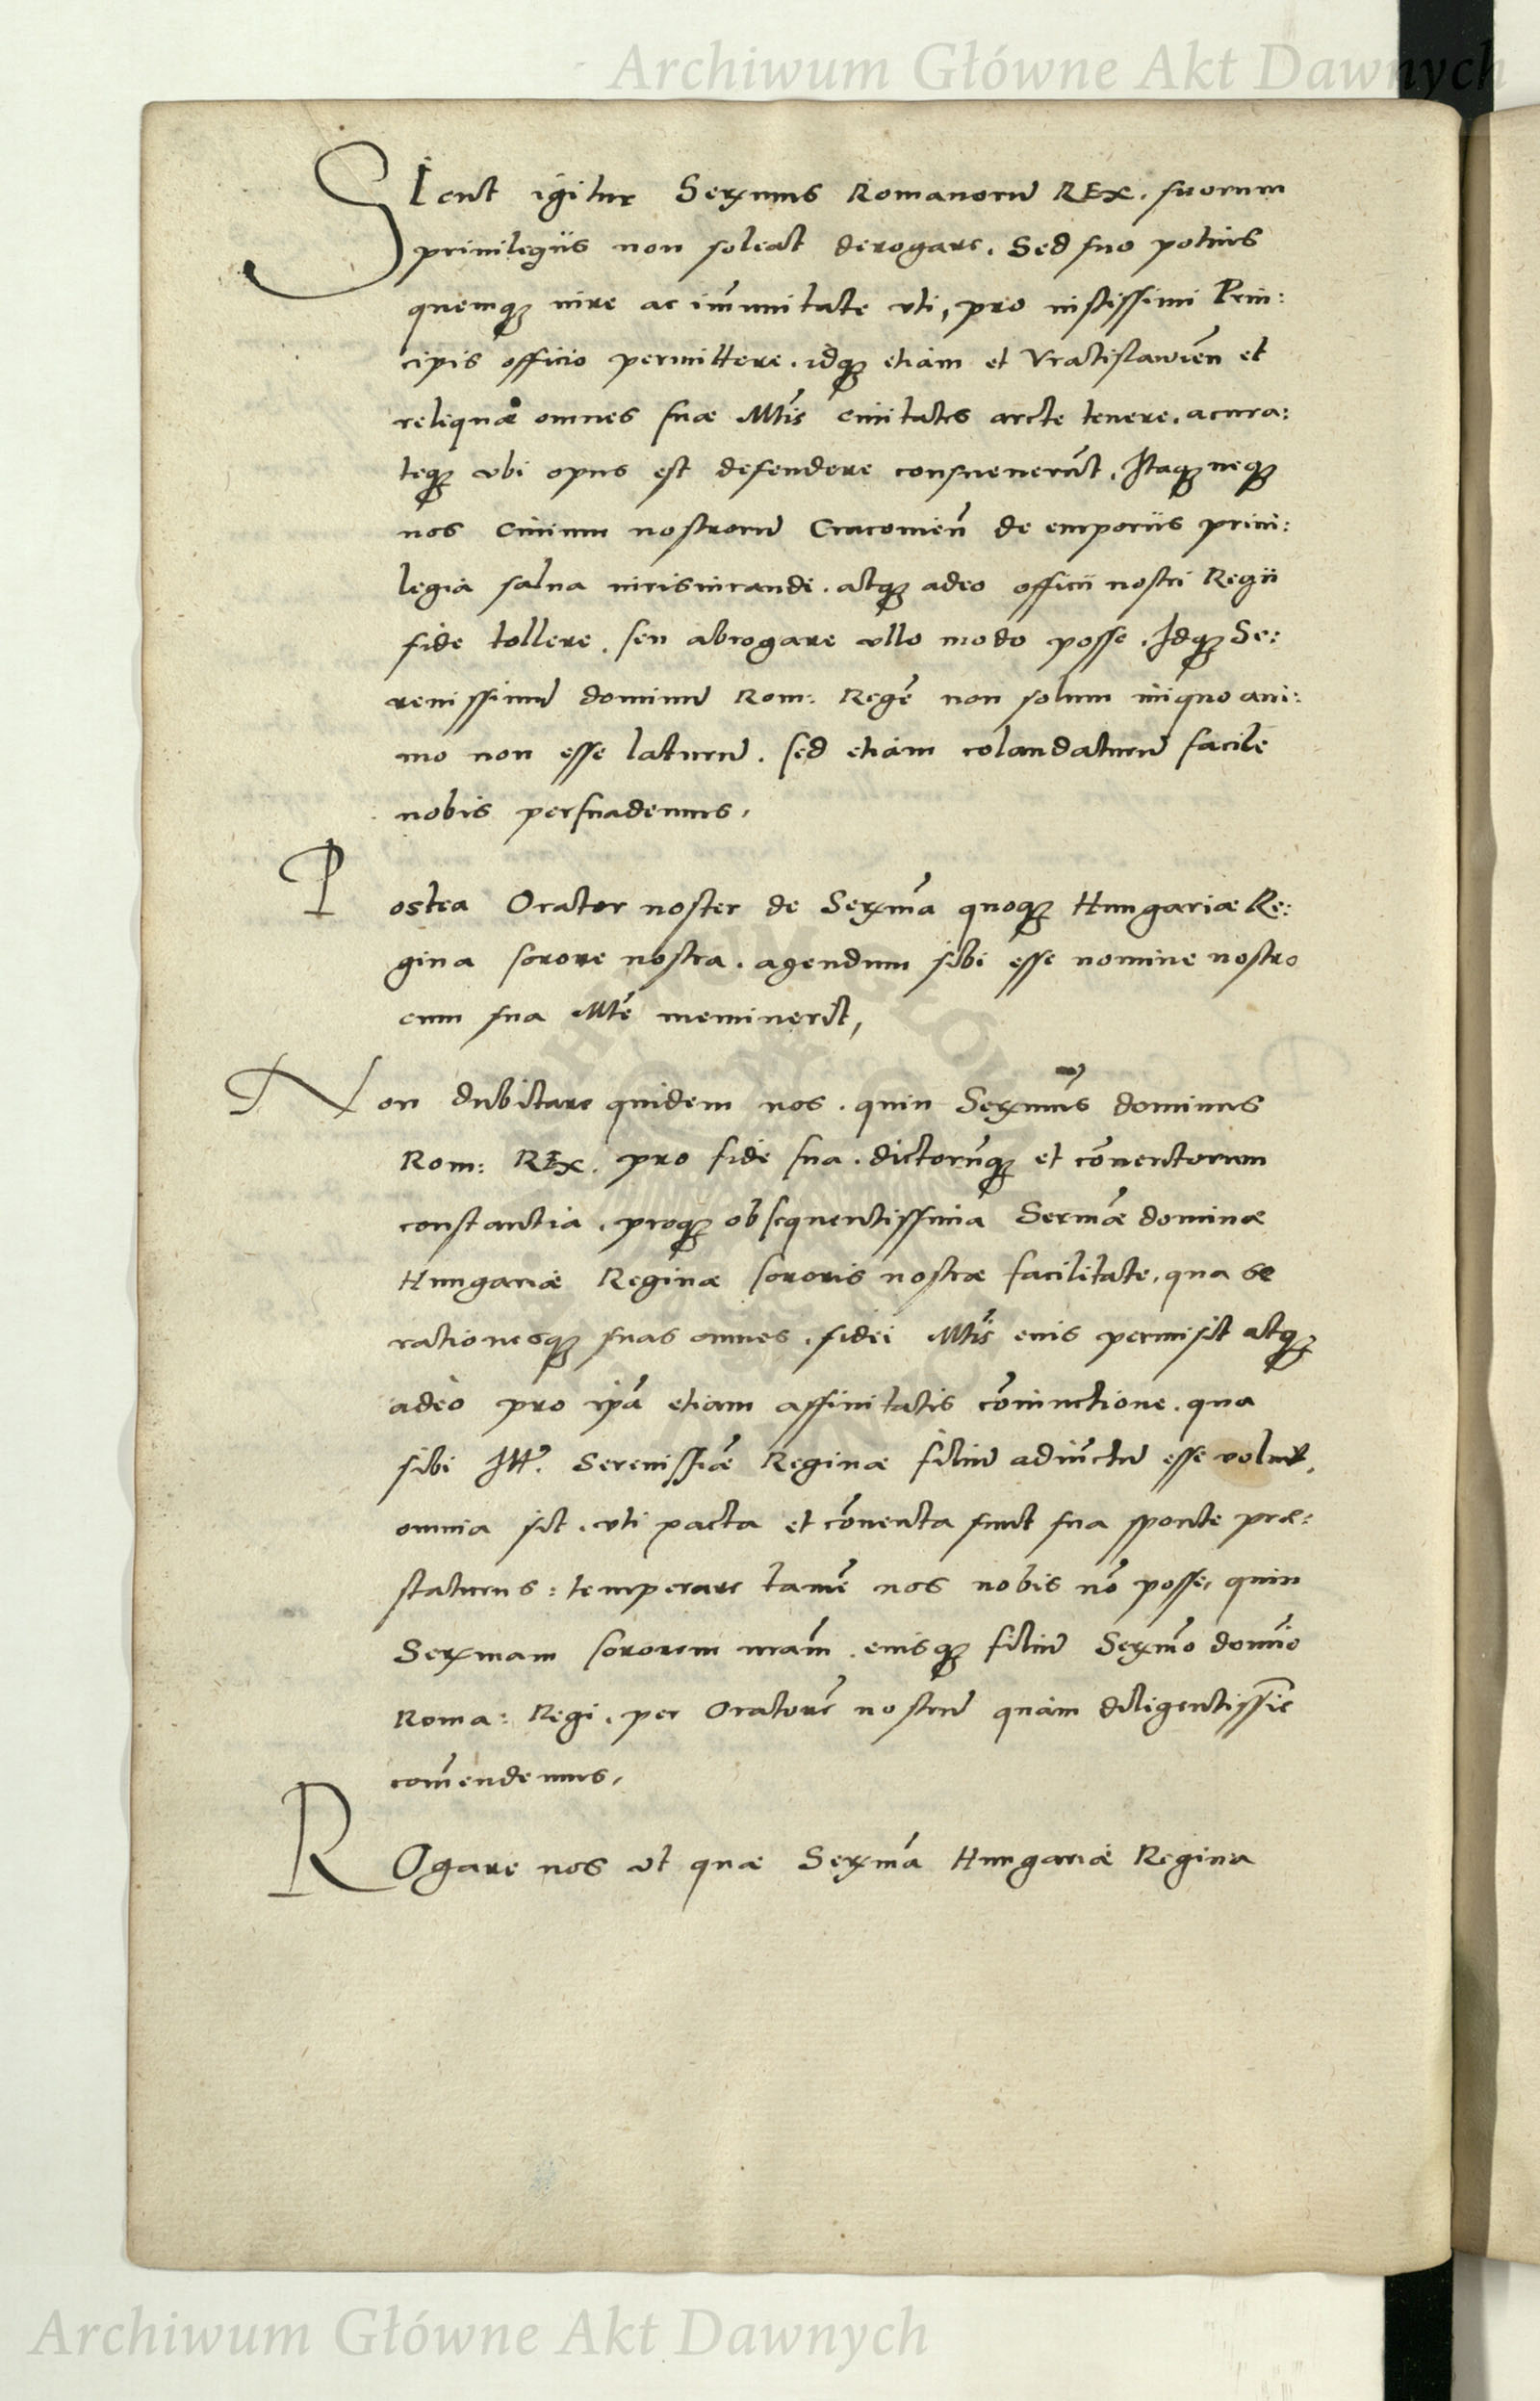 Archiwum Główne Akt Dawnych
SIcut igitur Serx̃mus Romanorũ REx. suorum
priuilegiis non soleat derogare. Sed suo potius
quemq̃ iure ac im̃unitate vti, pro iustissimi Prin:
cipis officio permittere. idq̃ etiam et Vratislawień et
reliquæ omnes suæ Mt̃is ciuitates arcte tenere. acura:
teq̃ vbi opus est defendere consueuerũt. Itaq̃ neq̃
nos Ciuium nostrorũ Cracouień de emporiis priui:
legia salua iurisiurandi. atq̃ adeo officii nostri Regii
fide tollere. seu abrogare vllo modo posse. Idq̃ Se:
renissimũ dominũ Rom: Regẽ non solum iniquo ani:
mo non esse laturũ. sed etiam colaudaturũ facile
nobis persuademus,
Postea Orator noster de Serx̃ma quoq̃ Hungariæ Re:
gina sorore nostra. agendum sibi esse nomine nostro
cum sua Mt̃e meminerit,
Non dubitare quidem nos. quin Serx̃mus dominus
Rom: REx. pro fide sua. dictorũq̃ et cõuentorum
constantia. proq̃ obsequentissima Serm̃æ dominæ
Hungariæ Reginæ sororis nostræ facilitate. qua se
rationesq̃ suas omnes. fidei Mt̃is eius permisit atq̃
adeo pro ip̃a etiam affinitatis cõiunctione. qua
sibi Ill̃. Sereniss̃æ Reginæ filiũ adiũctũ esse voluit,
omnia sit. vti pacta et cõuenta sunt sua sponte præ:
staturus: temperare tamẽ nos nobis nõ posse, quin
Serxmam sororem nr̃am. eiusq̃ filiũ Serx̃mo domĩo
Roma: Regi. per Oratorẽ nostrũ quam diligentiss̃ie
com̃endemus,
ROgare nos vt quæ Serx̃ma Hungariæ Regina
Archiwum Główne Akt Dawnych